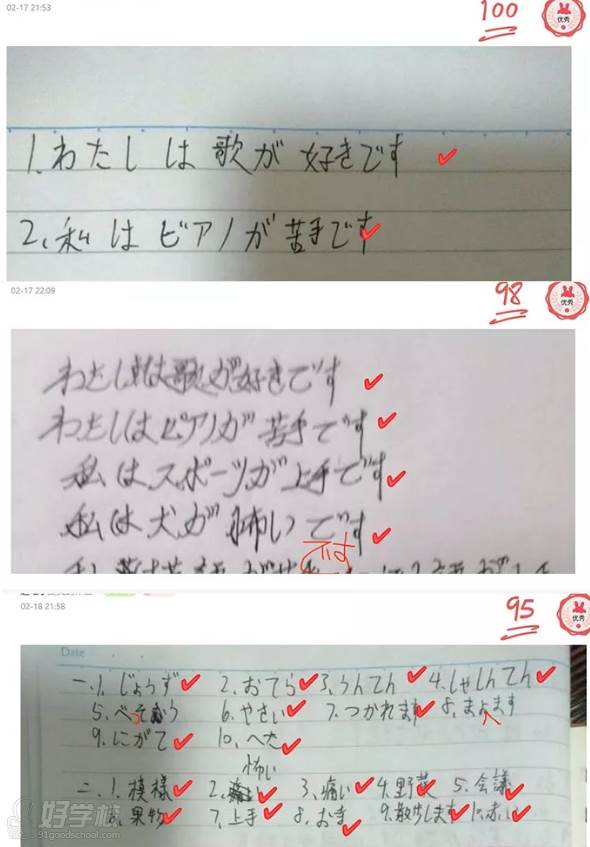 02-17 21:53
100
优秀
1.わたしは歌が好きです
2、私はピアノが苦手です
02-17 22:09
98
优秀
わたしは歌が好きです
わたしはピアノが苦手です
私はスポーツが上手です
私は犬が怖いです
02-18 21:58
95
优秀
Date
一.1.じょうず 2.おてら 3.うんてん 4.しゃしんてん
5.べっそう 6.やさい 7.つかれます 8.まよます
9.にがて 10.へた
怖い
二.1.模様 2. 3.痛い 4.野菜 5.会議
6.果物 7.上手 8.お寺 9.散歩します 10.赤い
好学校
91goodschool.com